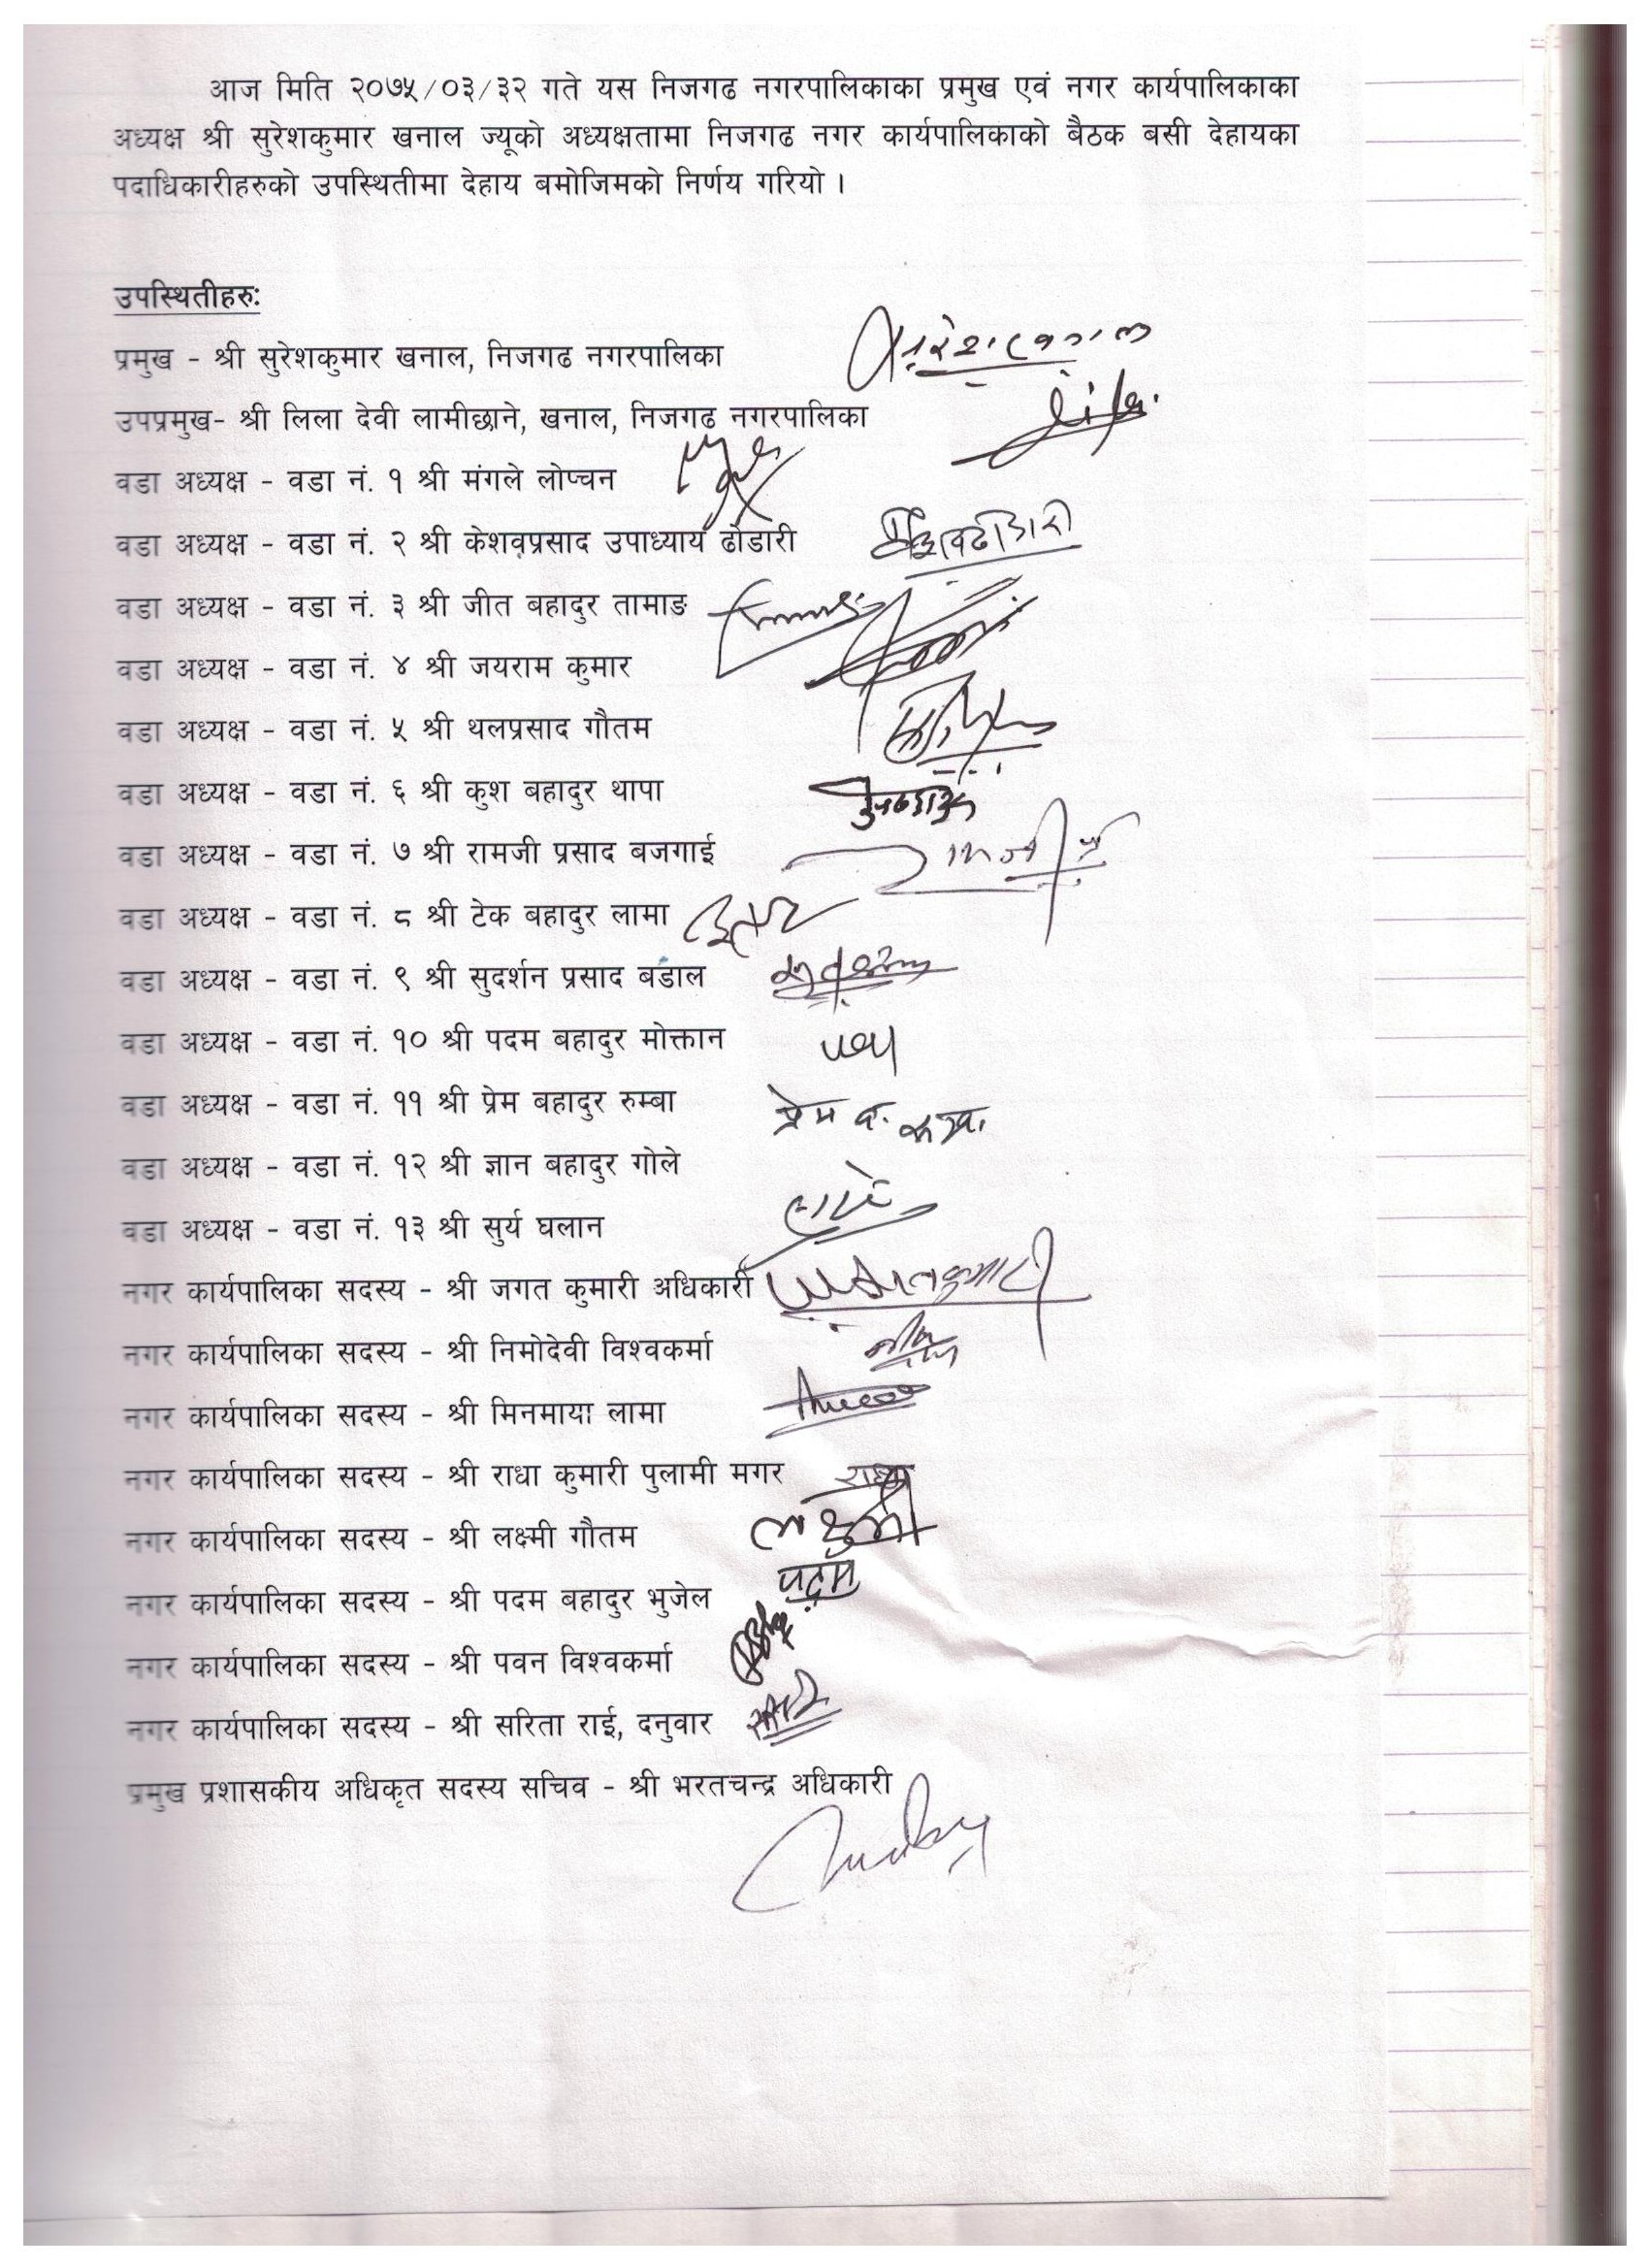 आज मिति २०७५/०३/३२ गते यस निजगढ नगरपालिकाका प्रमुख एवं नगर कार्यपालिकाका
अध्यक्ष श्री सुरेशकुमार खनाल ज्यूको अध्यक्षतामा निजगढ नगर कार्यपालिकाको बैठक बसी देहायका
पदाधिकारीहरुको उपस्थितीमा देहाय बमोजिमको निर्णय गरियो ।
उपस्थितीहरु:
प्रमुख - श्री सुरेशकुमार खनाल, निजगढ नगरपालिका
उपप्रमुख- श्री लिला देवी लामीछाने, खनाल, निजगढ नगरपालिका
वडा अध्यक्ष - वडा नं. १ श्री मंगले लोप्चन
वडा अध्यक्ष - वडा नं. २ श्री केशवप्रसाद उपाध्याय ढोडारी
वडा अध्यक्ष - वडा नं. ३ श्री जीत बहादुर तामाङ
वडा अध्यक्ष - वडा नं. ४ श्री जयराम कुमार
वडा अध्यक्ष - वडा नं. ५ श्री थलप्रसाद गौतम
वडा अध्यक्ष - वडा नं. ६ श्री कुश बहादुर थापा
वडा अध्यक्ष - वडा नं. ७ श्री रामजी प्रसाद बजगाई
वडा अध्यक्ष - वडा नं. ८ श्री टेक बहादुर लामा
वडा अध्यक्ष - वडा नं. ९ श्री सुदर्शन प्रसाद बडाल
वडा अध्यक्ष - वडा नं. १० श्री पदम बहादुर मोक्तान
वडा अध्यक्ष - वडा नं. ११ श्री प्रेम बहादुर रुम्बा प्रेम ब.
वडा अध्यक्ष - वडा नं. १२ श्री ज्ञान बहादुर गोले
वडा अध्यक्ष - वडा नं. १३ श्री सुर्य घलान
नगर कार्यपालिका सदस्य - श्री जगत कुमारी अधिकारी
नगर कार्यपालिका सदस्य - श्री निमोदेवी विश्वकर्मा
नगर कार्यपालिका सदस्य - श्री मिनमाया लामा
नगर कार्यपालिका सदस्य - श्री राधा कुमारी पुलामी मगर राधा
नगर कार्यपालिका सदस्य - श्री लक्ष्मी गौतम लक्ष्मी
नगर कार्यपालिका सदस्य - श्री पदम बहादुर भुजेल पदम
नगर कार्यपालिका सदस्य - श्री पवन विश्वकर्मा
नगर कार्यपालिका सदस्य - श्री सरिता राई, दनुवार
प्रमुख प्रशासकीय अधिकृत सदस्य सचिव - श्री भरतचन्द्र अधिकारी